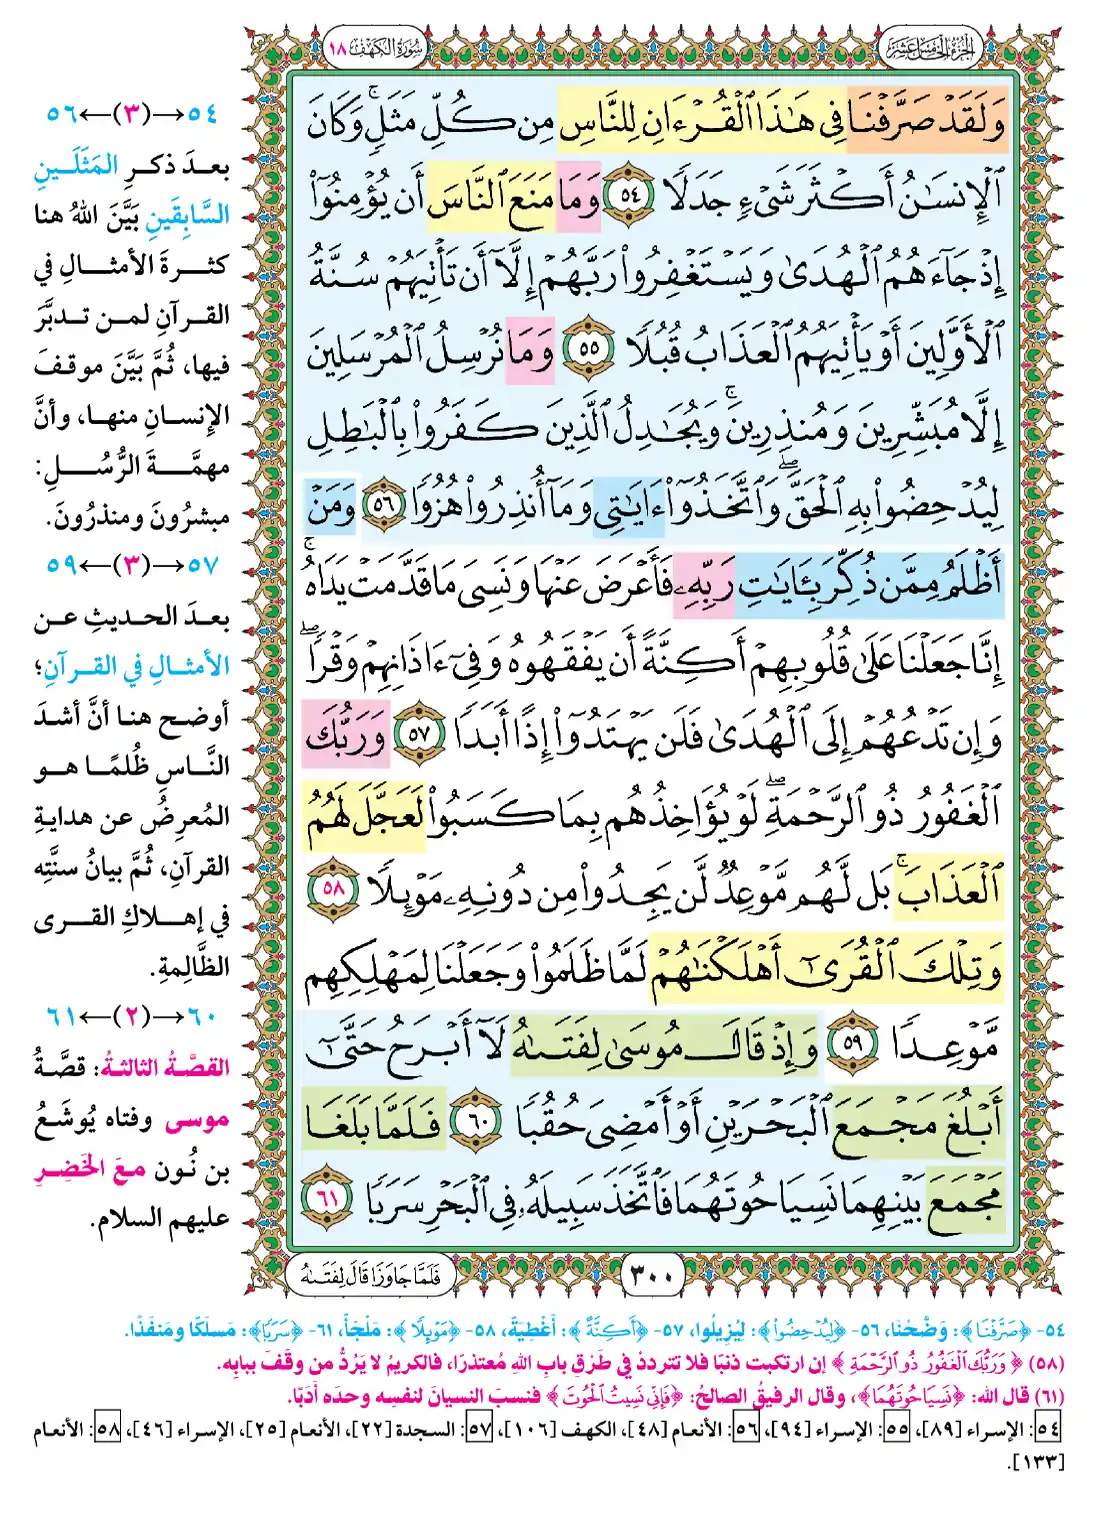 الجزء الخامس عشر
سورة الكهف ١٨
وَلَقَدْ صَرَّفْنَا فِي هَٰذَا ٱلْقُرْءَانِ لِلنَّاسِ مِن كُلِّ مَثَلٍۚ وَكَانَ
ٱلْإِنسَٰنُ أَكْثَرَ شَيْءٍ جَدَلًا ٥٤ وَمَا مَنَعَ ٱلنَّاسَ أَن يُؤْمِنُوٓا۟
إِذْ جَآءَهُمُ ٱلْهُدَىٰ وَيَسْتَغْفِرُوا۟ رَبَّهُمْ إِلَّآ أَن تَأْتِيَهُمْ سُنَّةُ
ٱلْأَوَّلِينَ أَوْ يَأْتِيَهُمُ ٱلْعَذَابُ قُبُلًا ٥٥ وَمَا نُرْسِلُ ٱلْمُرْسَلِينَ
إِلَّا مُبَشِّرِينَ وَمُنذِرِينَۚ وَيُجَٰدِلُ ٱلَّذِينَ كَفَرُوا۟ بِٱلْبَٰطِلِ
لِيُدْحِضُوا۟ بِهِ ٱلْحَقَّۖ وَٱتَّخَذُوٓا۟ ءَايَٰتِي وَمَآ أُنذِرُوا۟ هُزُوًا ٥٦ وَمَنْ
أَظْلَمُ مِمَّن ذُكِّرَ بِـَٔايَٰتِ رَبِّهِۦ فَأَعْرَضَ عَنْهَا وَنَسِيَ مَا قَدَّمَتْ يَدَاهُۚ
إِنَّا جَعَلْنَا عَلَىٰ قُلُوبِهِمْ أَكِنَّةً أَن يَفْقَهُوهُ وَفِيٓ ءَاذَانِهِمْ وَقْرًاۖ
وَإِن تَدْعُهُمْ إِلَى ٱلْهُدَىٰ فَلَن يَهْتَدُوٓا۟ إِذًا أَبَدًا ٥٧ وَرَبُّكَ
ٱلْغَفُورُ ذُو ٱلرَّحْمَةِۖ لَوْ يُؤَاخِذُهُم بِمَا كَسَبُوا۟ لَعَجَّلَ لَهُمُ
ٱلْعَذَابَۚ بَل لَّهُم مَّوْعِدٌ لَّن يَجِدُوا۟ مِن دُونِهِۦ مَوْئِلًا ٥٨
وَتِلْكَ ٱلْقُرَىٰٓ أَهْلَكْنَٰهُمْ لَمَّا ظَلَمُوا۟ وَجَعَلْنَا لِمَهْلِكِهِم
مَّوْعِدًا ٥٩ وَإِذْ قَالَ مُوسَىٰ لِفَتَىٰهُ لَآ أَبْرَحُ حَتَّىٰٓ
أَبْلُغَ مَجْمَعَ ٱلْبَحْرَيْنِ أَوْ أَمْضِيَ حُقُبًا ٦٠ فَلَمَّا بَلَغَا
مَجْمَعَ بَيْنِهِمَا نَسِيَا حُوتَهُمَا فَٱتَّخَذَ سَبِيلَهُۥ فِي ٱلْبَحْرِ سَرَبًا ٦١
٣٠٠
فَلَمَّا جَاوَزَا قَالَ لِفَتَىٰهُ
٥٤→(٣)←٥٦
بعدَ ذكرِ المَثَلَينِ
السَّابِقَينِ بَيَّنَ اللهُ هنا
كثرةَ الأمثالِ في
القرآنِ لمن تدبَّرَ
فيها، ثُمَّ بَيَّنَ موقفَ
الإنسانِ منها، وأنَّ
مهمَّةَ الرُّسُلِ:
مبشرُونَ ومنذرُونَ.
٥٧→(٣)←٥٩
بعدَ الحديثِ عن
الأمثالِ في القرآنِ؛
أوضح هنا أنَّ أشدَ
النَّاسِ ظُلمًا هو
المُعرِضُ عن هدايةِ
القرآنِ، ثُمَّ بيانُ سنَّتِه
في إهلاكِ القرى
الظَّالِمةِ.
٦٠→(٢)←٦١
القصَّةُ الثالثةُ: قصَّةُ
موسى وفتاه يُوشَعُ
بن نُون معَ الخَضِرِ
عليهم السلام.
٥٤- ﴿صَرَّفْنَا﴾: وَضَّحْنَا، ٥٦- ﴿لِيُدْحِضُوا۟﴾: لِيُزِيلُوا، ٥٧- ﴿أَكِنَّةً﴾: أَغْطِيَةً، ٥٨- ﴿مَوْئِلًا﴾: مَلْجَأً، ٦١- ﴿سَرَبًا﴾: مَسلَكًا ومَنفَذًا.
(٥٨) ﴿وَرَبُّكَ ٱلْغَفُورُ ذُو ٱلرَّحْمَةِ﴾ إن ارتكبت ذنبًا فلا تترددْ في طَرْقِ بابِ اللهِ مُعتذرًا، فالكريمُ لا يَرُدُّ من وقَفَ ببابِه.
(٦١) قال الله: ﴿نَسِيَا حُوتَهُمَا﴾، وقال الرفيقُ الصالحُ: ﴿فَإِنِّي نَسِيتُ ٱلْحُوتَ﴾ فنسبَ النسيانَ لنفسِه وحدَه أدَبًا.
٥٤: الإسراء [٨٩]، ٥٥: الإسراء [٩٤]، ٥٦: الأنعام [٤٨]، الكهف [١٠٦]، ٥٧: السجدة [٢٢]، الأنعام [٢٥]، الإسراء [٤٦]، ٥٨: الأنعام
[١٣٣].